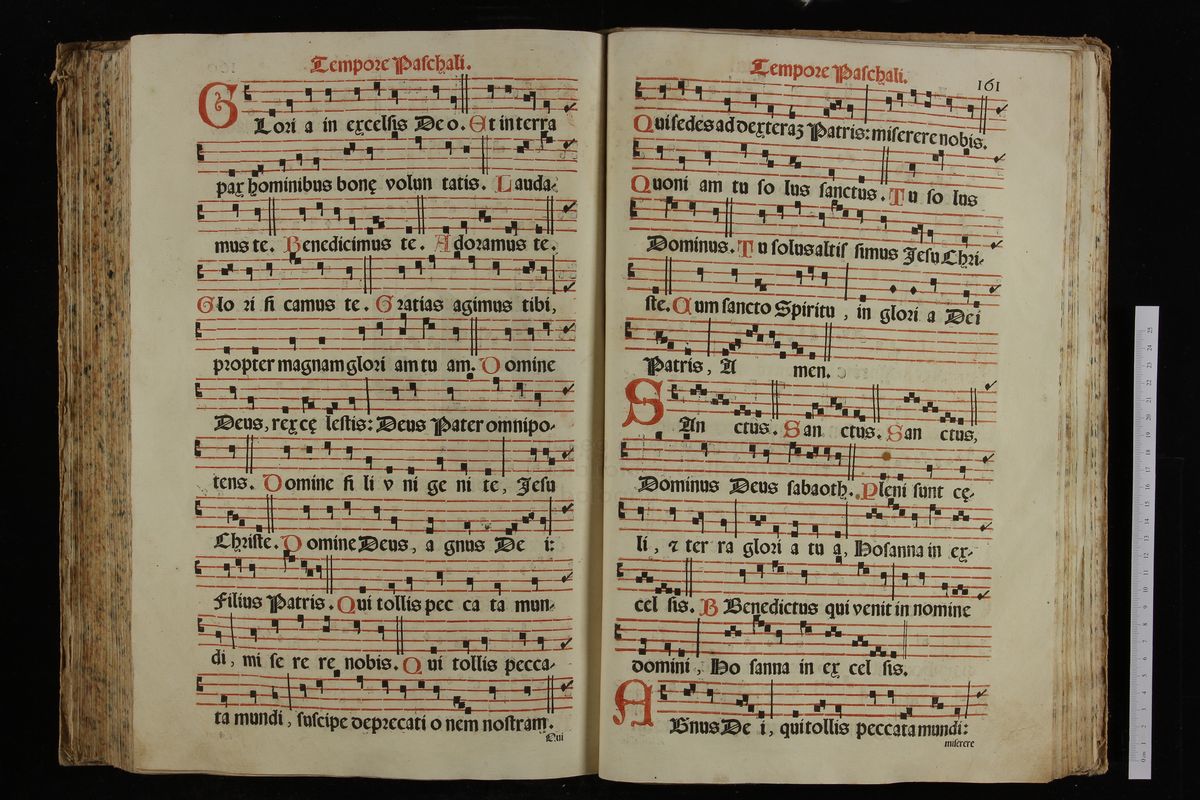 Tempore Paschali.
GLori a in excelsis Deo. Et in terra
pax hominibus bonę volun tatis. Lauda-
mus te. Benedicimus te. Adoramus te.
Glo ri fi camus te. Gratias agimus tibi,
propter magnam glori am tu am. Domine
Deus, rex cę lestis: Deus Pater omnipo-
tens. Domine fi li v ni ge ni te, Jesu
Christe. Domine Deus, a gnus De i:
Filius Patris. Qui tollis pec ca ta mun-
di, mi se re re nobis. Qui tollis pecca-
ta mundi, suscipe deprecati o nem nostram.
Qui
Tempore Paschali.
161
Qui sedes ad dexteraꝫ Patris: miserere nobis.
Quoni am tu so lus sanctus. Tu so lus
Dominus. Tu solus altis simus Jesu Chri-
ste. Cum sancto Spiritu, in glori a Dei
Patris, A men.
SAn ctus. San ctus. San ctus,
Dominus Deus sabaoth. Pleni sunt cę-
li, ⁊ ter ra glori a tu a, Hosanna in ex-
cel sis. B Benedictus qui venit in nomine
domini, Ho sanna in ex cel sis.
AGnus De i, qui tollis peccata mundi:
miserere
0 cm 1 2 3 4 5 6 7 8 9 10 11 12 13 14 15 16 17 18 19 20 21 22 23 24 25